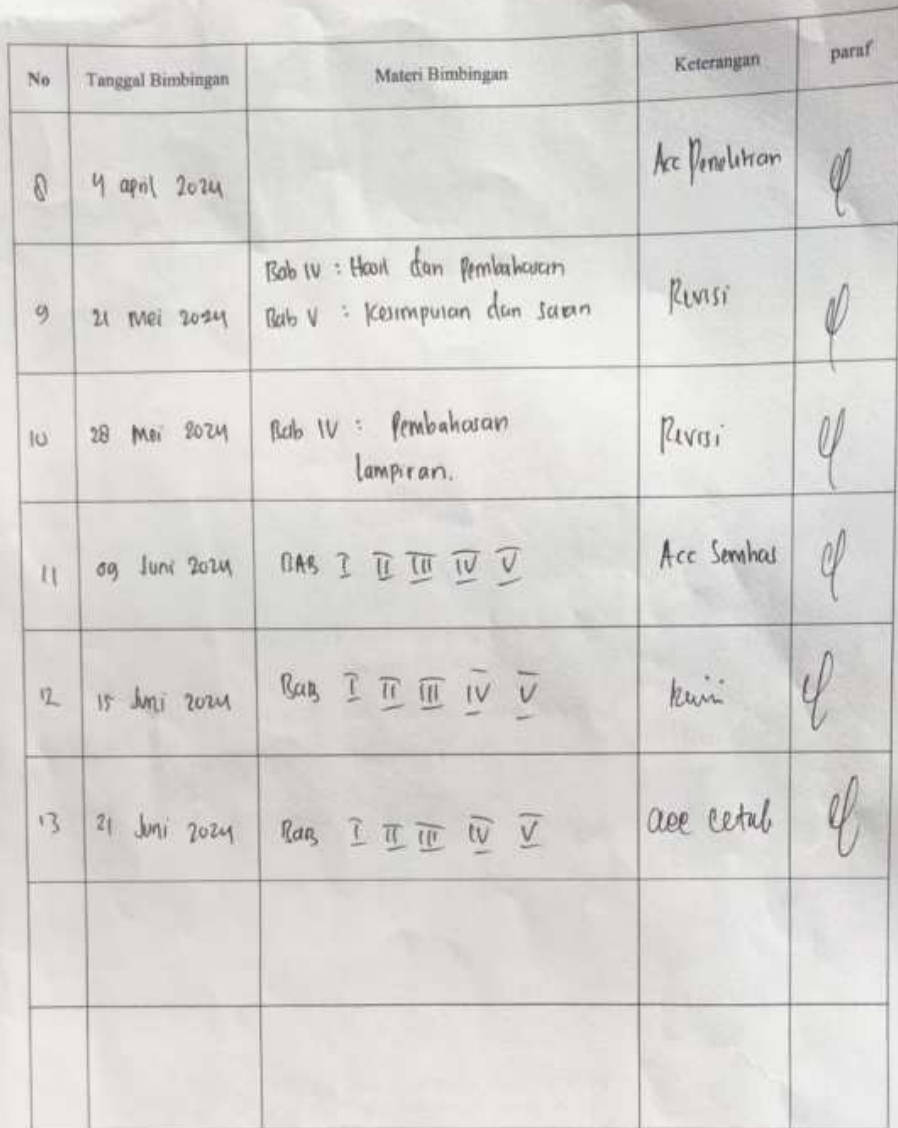 No Tanggal Bimbingan Materi Bimbingan Keterangan paraf
8 4 april 2024 Acc Penelitian
9 21 Mei 2024 Bab IV : Hasil dan Pembahasan Revisi
Bab V : Kesimpulan dan saran
10 28 Mei 2024 Bab IV : Pembahasan Revisi
lampiran.
11 09 Juni 2024 BAB I II III IV V Acc Semhas
12 15 Juni 2024 BaB I II III IV V
13 21 Juni 2024 BaB I II III IV V acc cetak